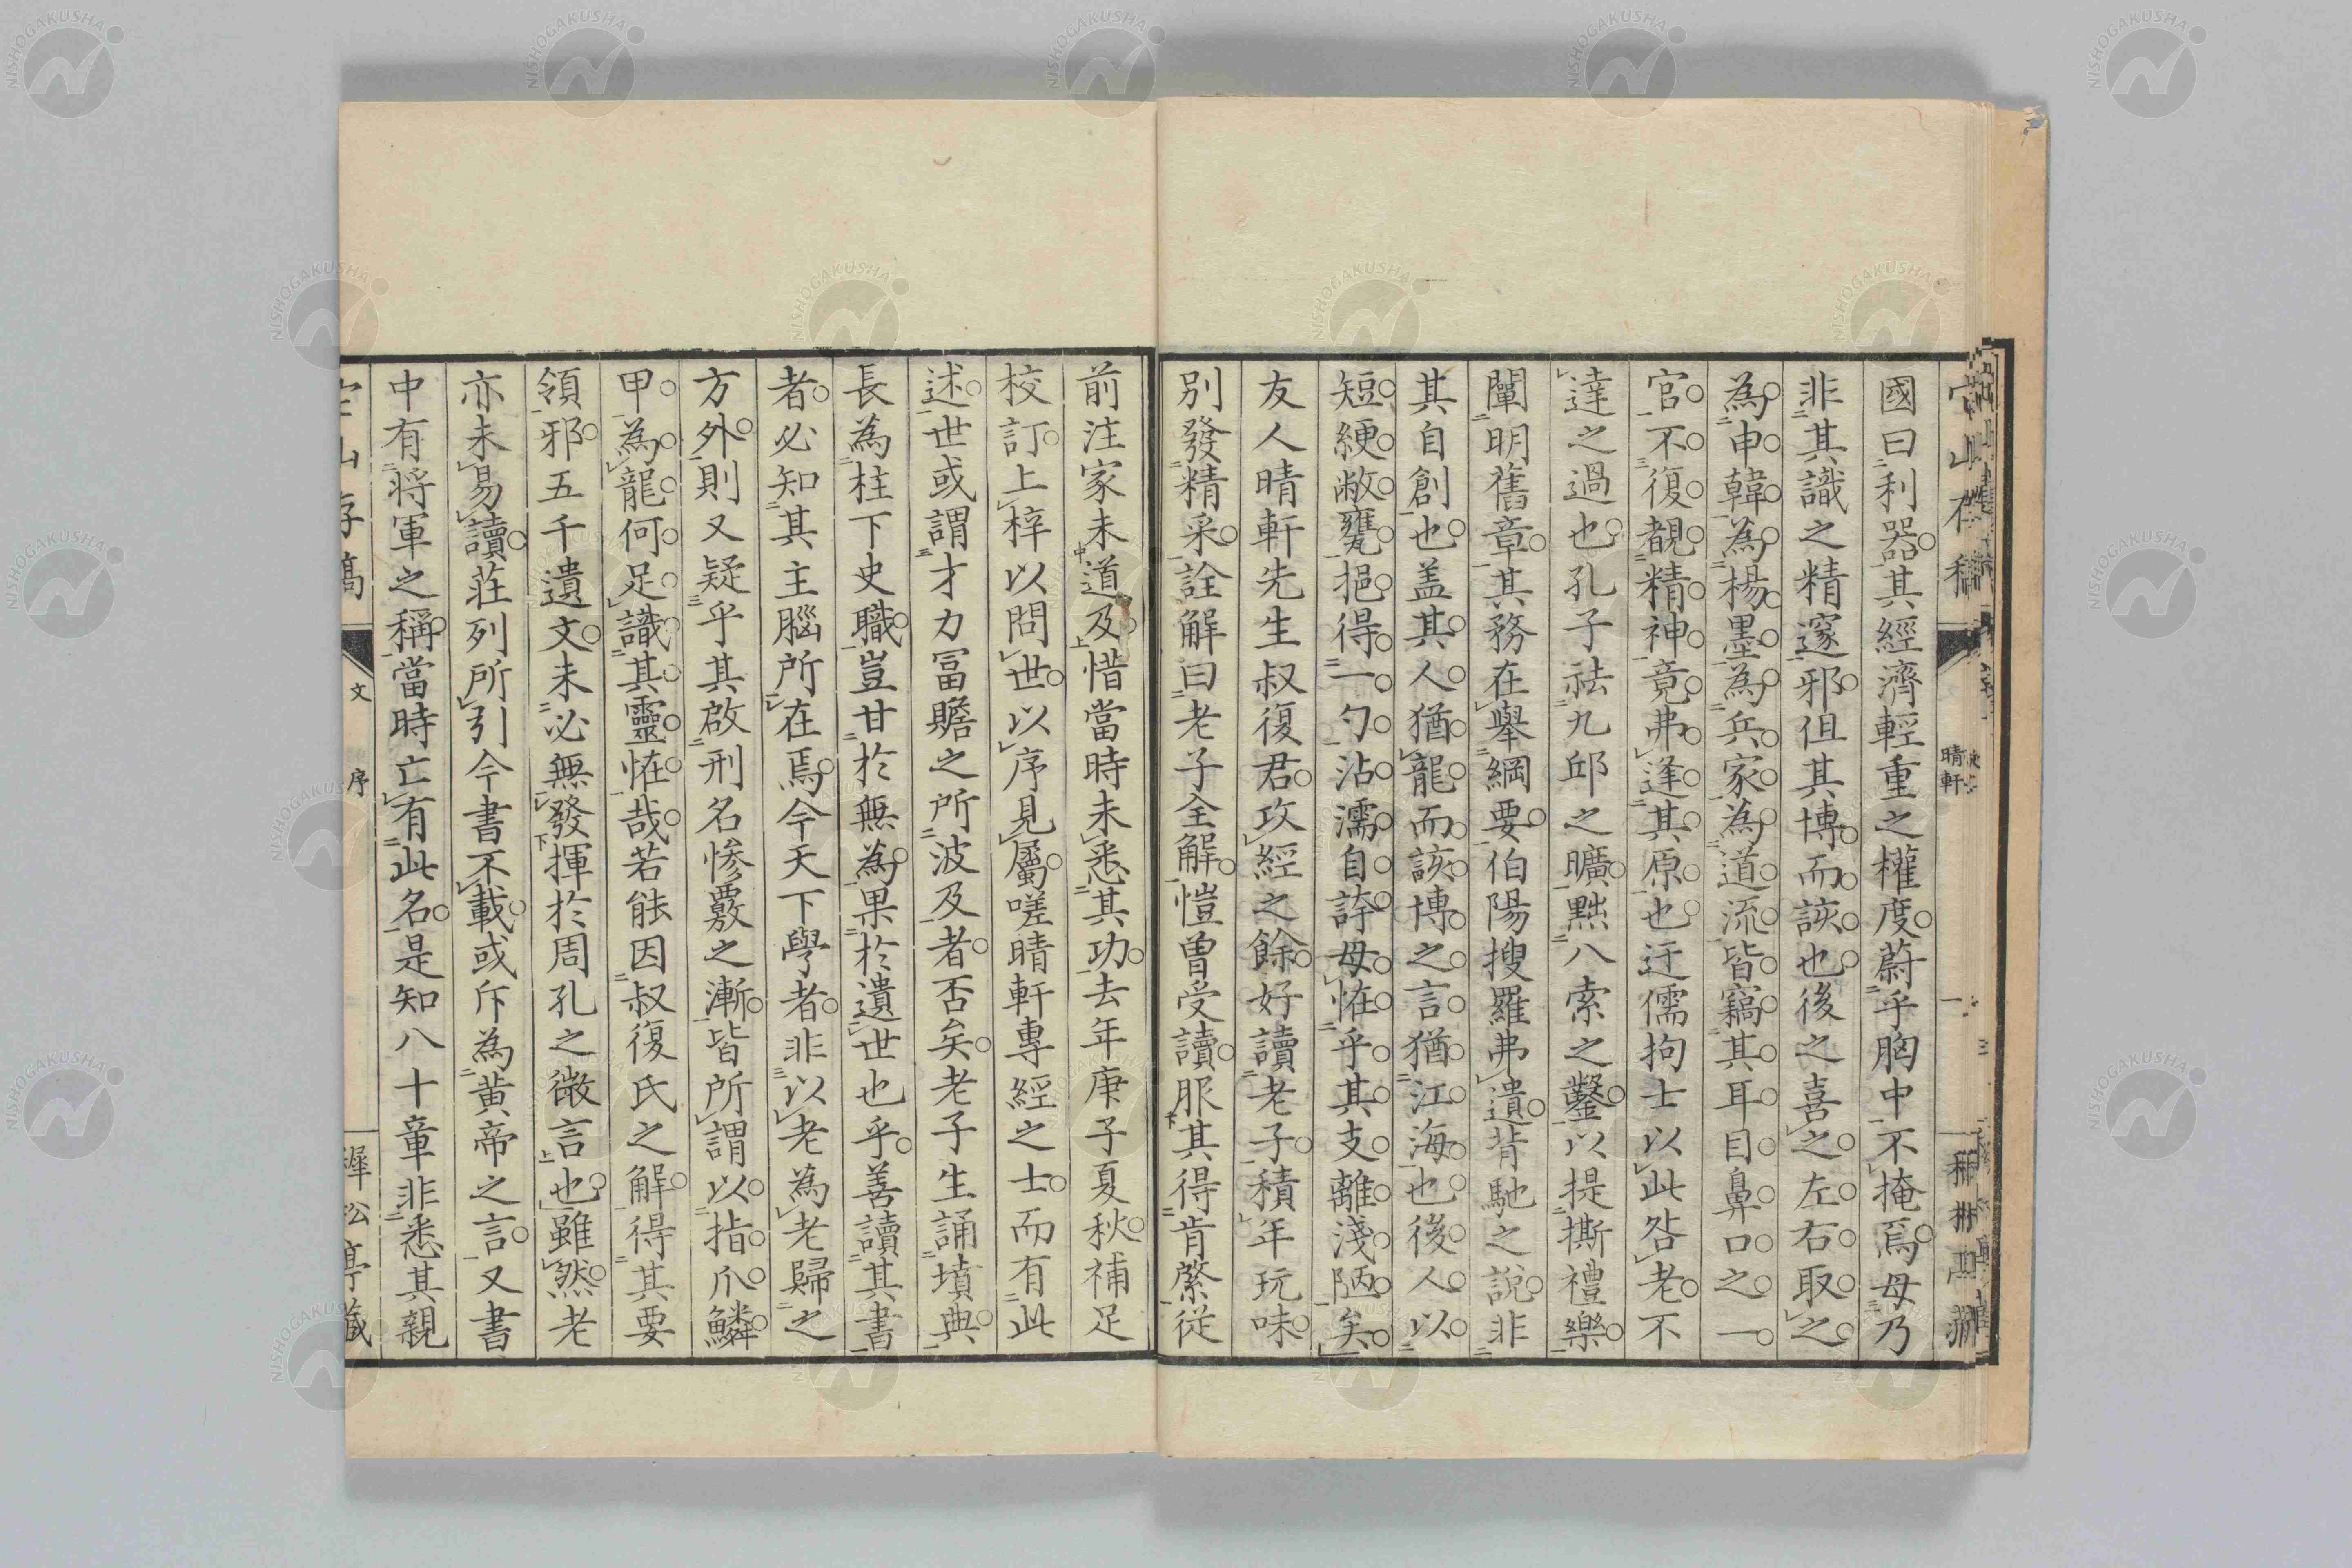 國曰利器其經濟輕重之權度蔚乎胸中不掩焉毋乃
非其識之精邃邪伹其博而該也後之喜之左右取之
為申韓為楊墨為兵家為道流皆竊其耳目鼻口之一
官不復覩精神竟弗逢其原也迂儒拘士以此咎老不
達之過也孔子祛九邱之曠黜八索之鑿以提撕禮樂
闡明舊章其務在舉綱要伯陽搜羅弗遺背馳之說非
其自創也盖其人猶龍而該博之言猶江海也後人以
短綆敝甕挹得一勺沾濡自詩毋恠乎其支離淺陋矣
友人晴軒先生叔復君攻經之餘好讀老子積年玩味
別發精采詮解曰老子全解愷曾受讀服其得肯綮從
前注家未道及惜當時未悉其功去年庚子夏秋補足
校訂上梓以問世以序見屬嗟晴軒專經之士而有此
述世或謂才力冨贍之所波及者否矣老子生誦墳典
長為柱下史職豈甘於無為果於遺世也乎善讀其書
者必知其主腦所在焉今天下學者非以老為老歸之
方外則又疑乎其啟刑名慘覈之漸皆所謂以指爪鱗
甲為龍何足識其靈恠哉若能因叔復氏之解得其要
領邪五千遺文未必無發揮於周孔之微言也雖然老
亦未易讀莊列所引今書不載或斥為黄帝之言又書
中有將軍之稱當時亡有此名是知八十章非悉其親
文 序